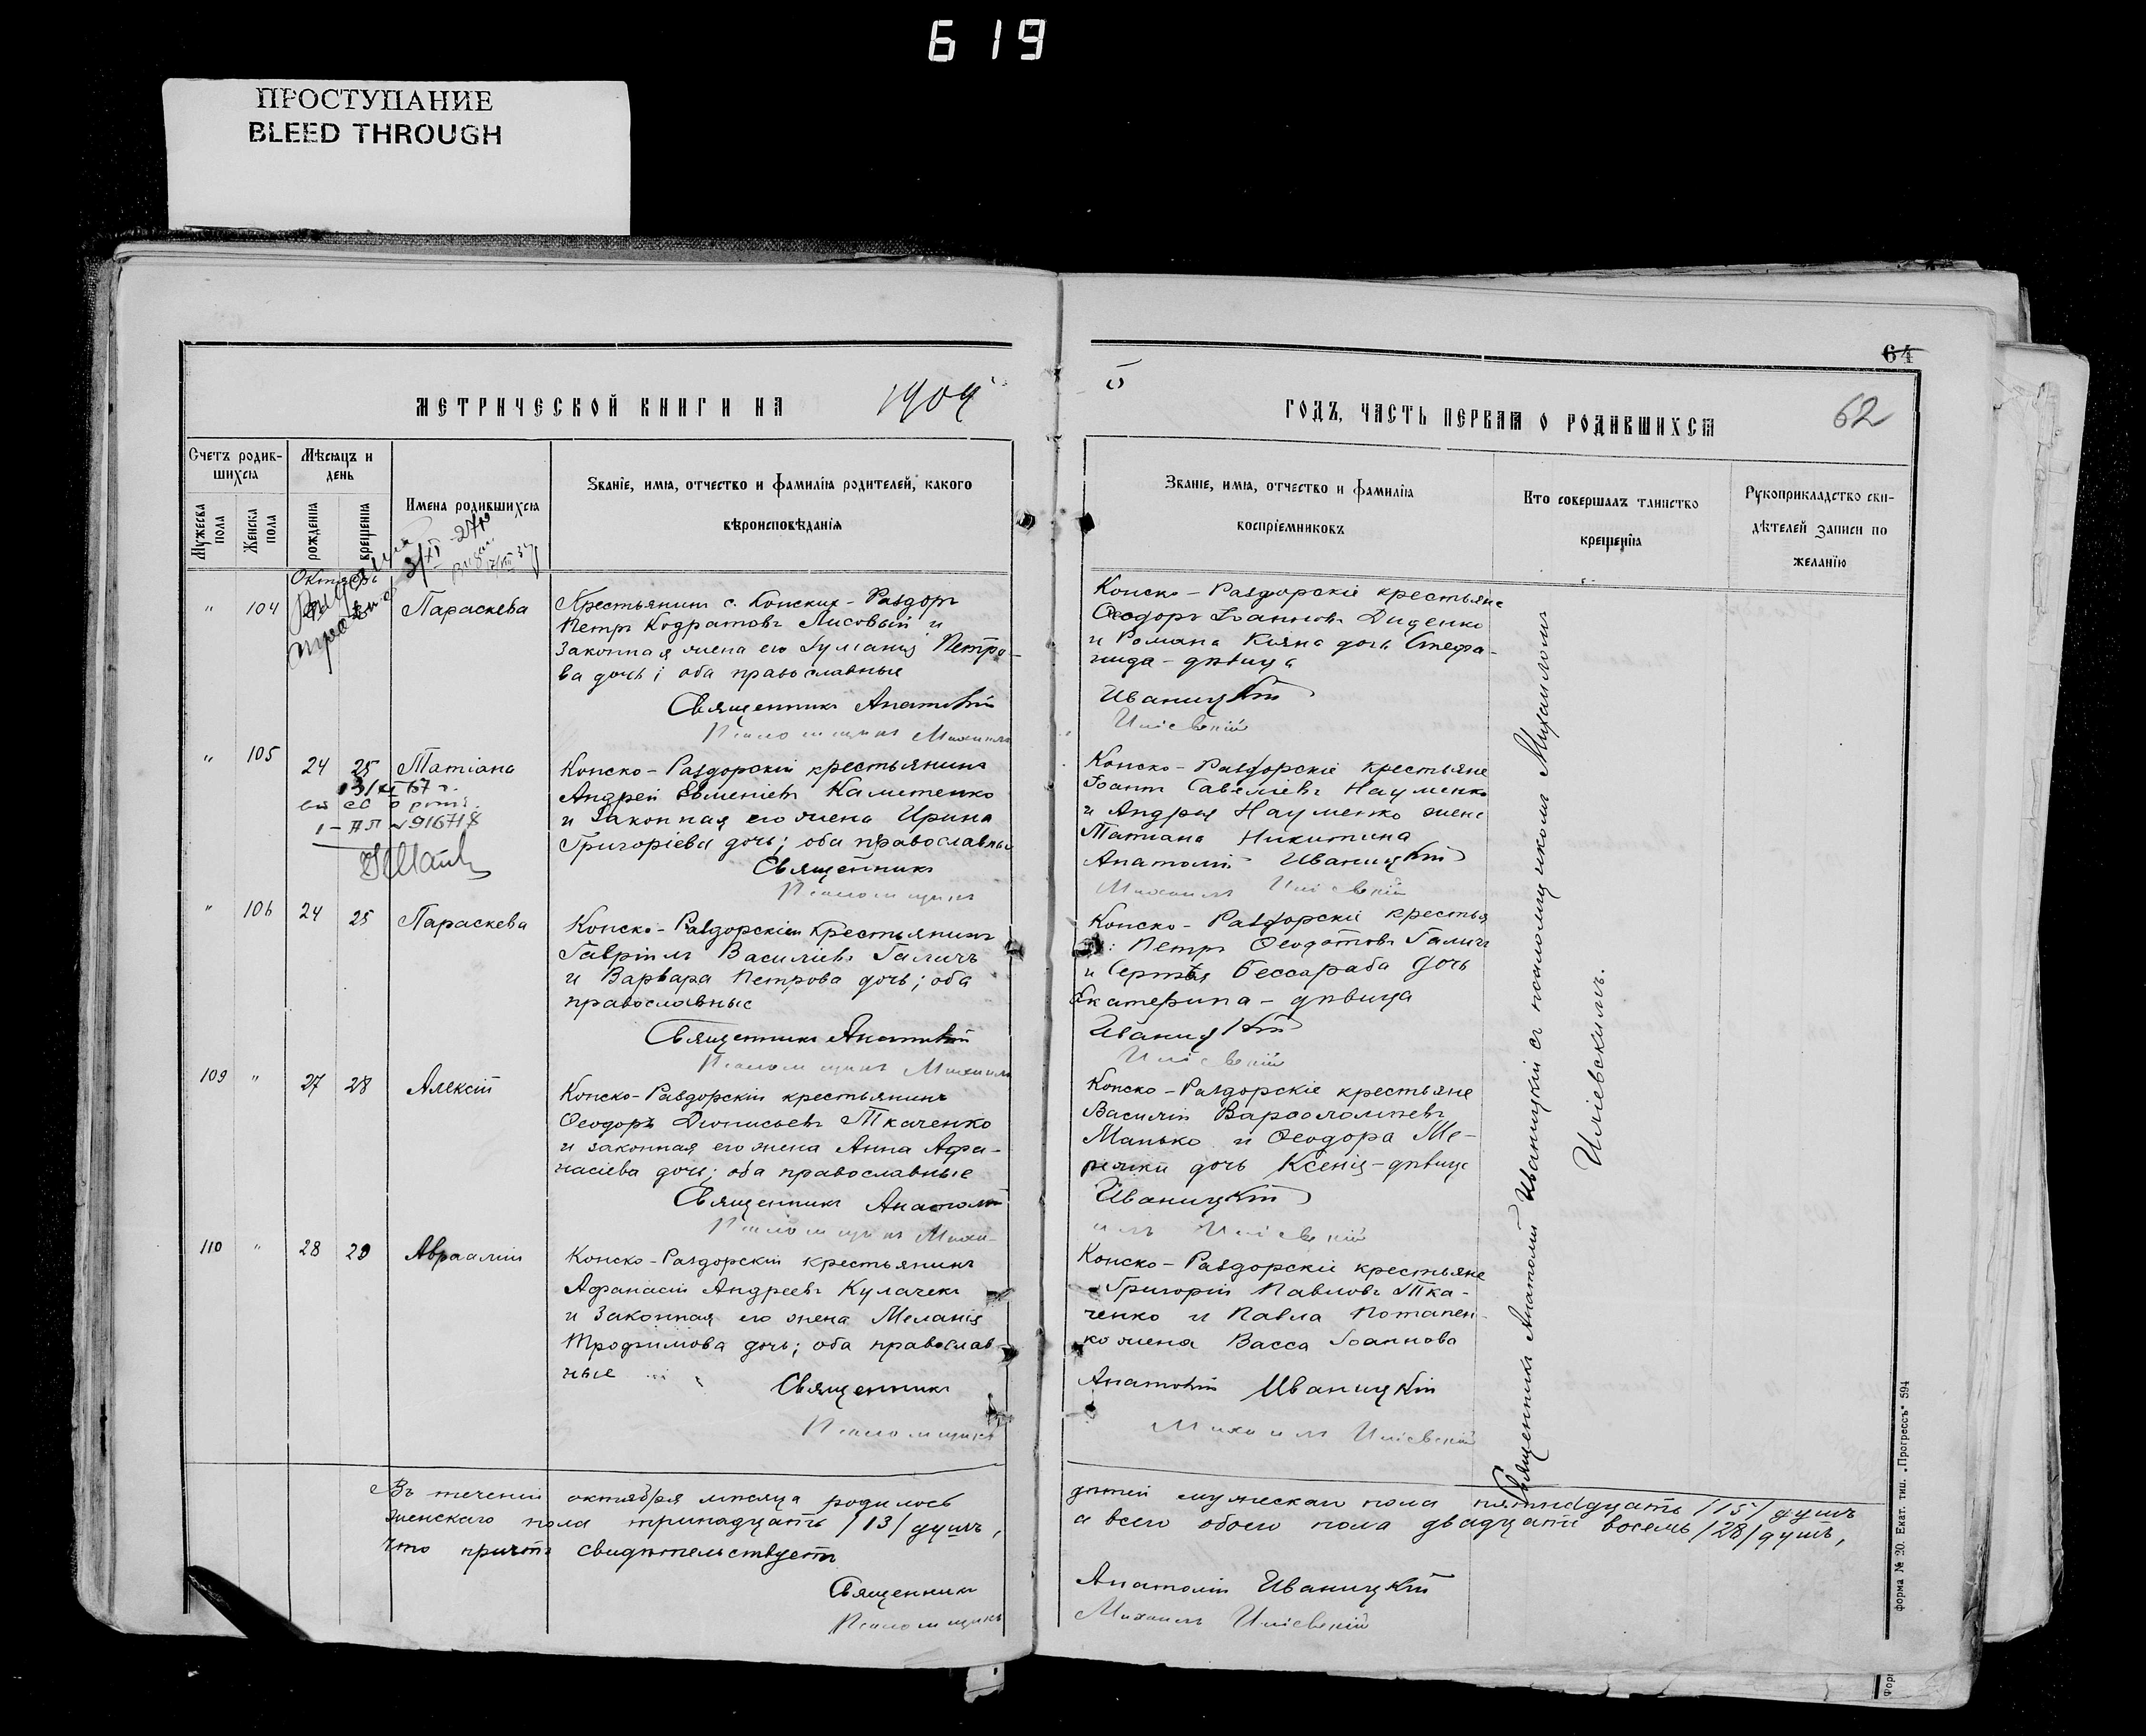 619
ПРОСТУПАНИЕ
BLEED THROUGH
64
МЕТРИЧЕСКОЙ КНИГИ НА 1909
ГОДЪ, ЧАСТЬ ПЕРВАЯ О РОДИВШИХСЯ
62
Счетъ родив-
шихся
Мужеска пола
Женска пола
Мѣсяцъ и
день
рожденія
крещенія
Имена родившихся
Званіе, имя, отчество и фамилія родителей, какого
вѣроисповѣданія
Званіе, имя, отчество и фамилія
воспріемниковъ
Кто совершалъ таинство
крещенія
Рукоприкладство сви-
дѣтелей записи по
желанію
Октябрь
" 104
Параскева
Крестьянинъ с. Конскихъ-Раздоръ
Петръ Кодратовъ Лисовый и
законная жена его Іуліанія Петро-
ва дочь; оба православные
Священникъ Анатолій
Псаломщикъ Михаилъ
Конско-Раздорскіе крестьяне
Ѳеодоръ Іоанновъ Диденко
и Романа Кіяна дочь Стефа-
нида - дѣвица
Иваницкій
Иліевскій
" 105 24 25 Татіана
1-АП №916718
Конско-Раздорскій крестьянинъ
Андрей Евменіевъ
и законная его жена Ирина
Григоріева дочь; оба православные
Священникъ
Псаломщикъ
Конско-Раздорскіе крестьяне
Іоаннъ Савеліевъ Науменко
и Андрея Науменко жена
Татіана Никитина
Анатолій Иваницкій
Михаилъ Иліевскій
" 106 24 25 Параскева
Конско-Раздорскій крестьянинъ
Гавріилъ Василіевъ Галичъ
и Варвара Петрова дочь; оба
православные
Священникъ Анатолій
Псаломщикъ Михаилъ
Конско-Раздорскіе крестья
Петръ Ѳеодотовъ Галичъ
и Сергѣя Бессараба дочь
Екатерина - дѣвица
Иваницкій
Иліевскій
109 " 27 28 Алексій
Конско-Раздорскій крестьянинъ
Ѳеодоръ Діонисьевъ Ткаченко
и законная его жена Анна Афа-
насіева дочь; оба православные
Священникъ Анатолій
Псаломщикъ Миха-
Конско-Раздорскіе крестьяне
Василій Варѳоломеевъ
Манько и Ѳеодора Ме-
дочь Ксенія - дѣвица
Иваницкій
илъ Иліевскій
110 " 28 29 Авраамій
Конско-Раздорскій крестьянинъ
Афанасій Андреевъ Кулачекъ
и законная его жена Меланія
Трофимова дочь; оба православ-
ные
Священникъ
Псаломщикъ
Конско-Раздорскіе крестьяне
Григорій Павловъ Тка-
ченко и Павла Потапен-
ко жена Васса Іоаннова
Анатолій Иваницкій
Михаилъ Иліевскій
Священникъ Анатолій Иваницкій съ псаломщикомъ Михаиломъ
Иліевскимъ.
Въ теченіи октября мѣсяца родилось
дѣтей мужескаго пола пятнадцать /15/ душъ
женскаго пола тринадцать /13/ душъ,
а всего обоего пола двадцать восемь /28/ душъ,
что причтъ свидѣтельствуетъ
Священникъ
Псаломщикъ
Анатолій Иваницкій
Михаилъ Иліевскій
Форма № 20. Екат. тип. „Прогрессъ" 594